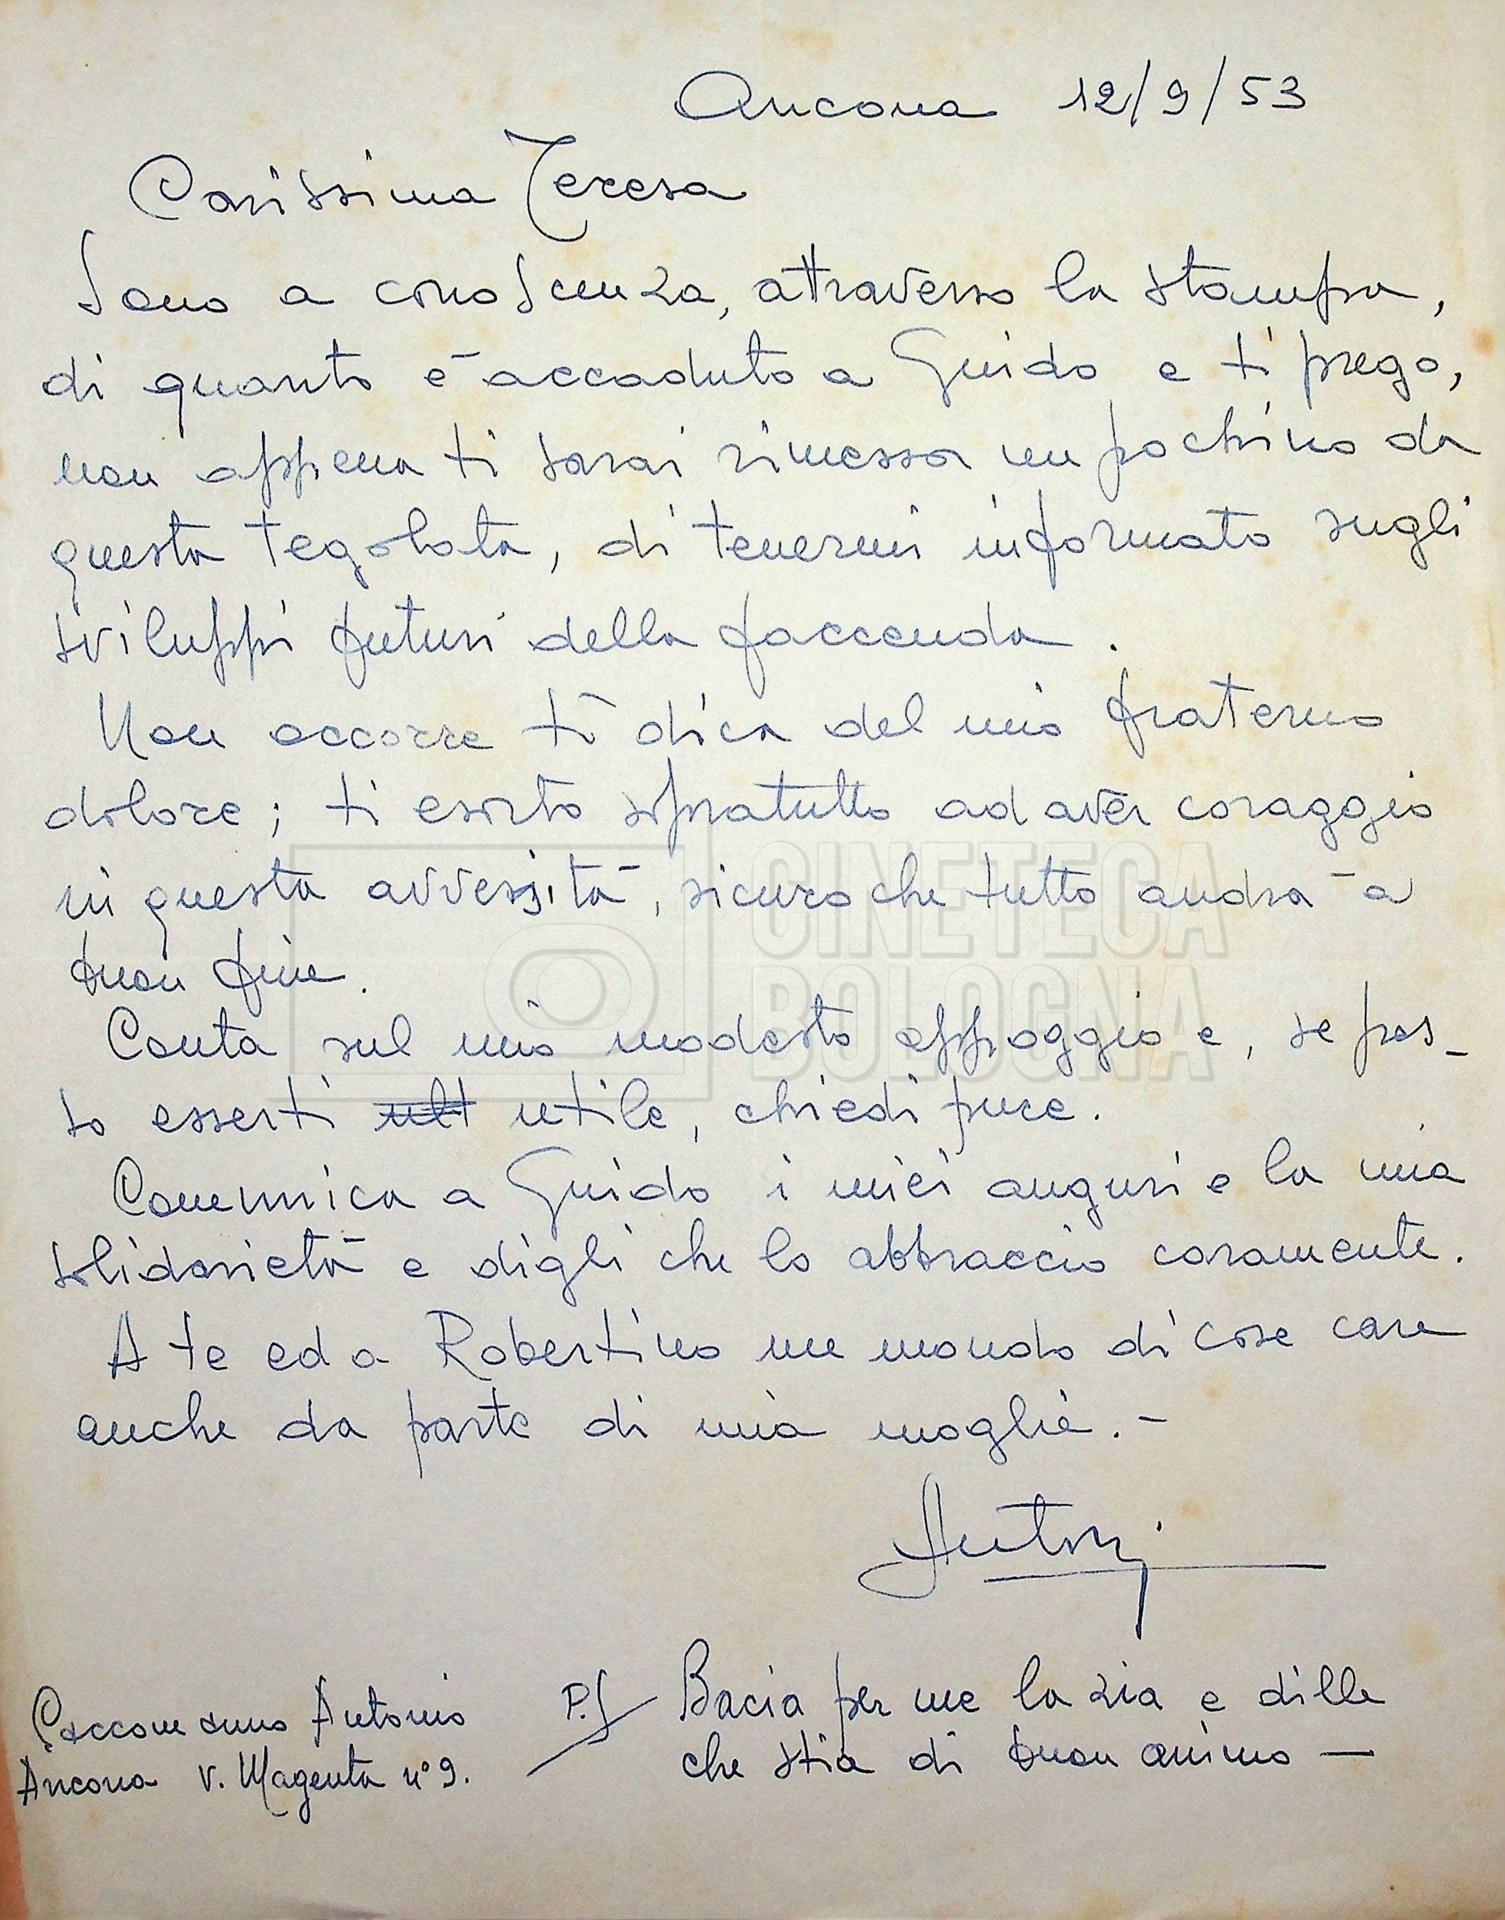 Ancona 12/9/53
Carissima Teresa
Sono a conoscenza, attraverso la stampa,
di quanto è accaduto a Guido e ti prego,
non appena ti sarai rimessa un pochino da
questa tegolata, di tenermi informato sugli
sviluppi futuri della faccenda.
Non occorre ti dica del mio fraterno
dolore; ti esorto sopratutto ad aver coraggio
in questa avversità, sicuro che tutto andrà a
buon fine.
Conta sul mio modesto appoggio e, se pos-
so esserti ult utile, chiedi pure.
Comunica a Guido i miei auguri e la mia
solidarietà e digli che lo abbraccio caramente.
A te ed a Robertino un mondo di cose care
anche da parte di mia moglie. -
Anton
P.S Bacia per me la zia e dille
che stia di buon animo -
Antonio
Ancona v. Magenta n° 9.
CINETECA
BOLOGNA